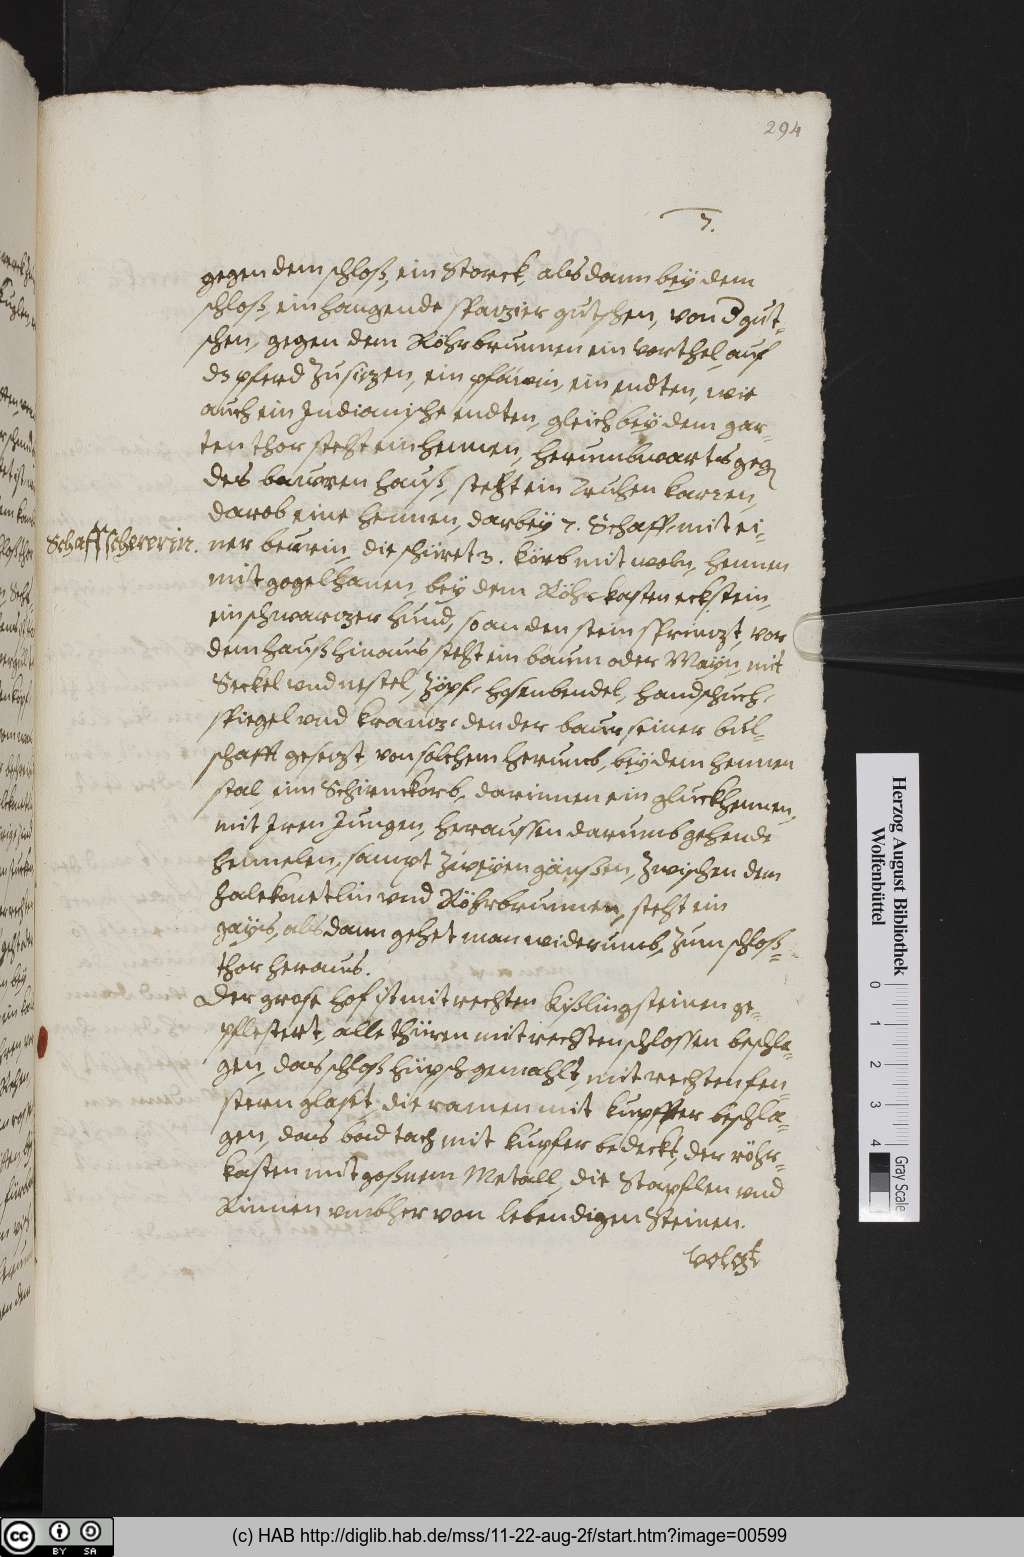 294
7.
gegen dem schloß, ein Storck, alsdann bey dem
schloß, ein hangende spazier gutschen, von d gut-
schen, gegen dem Röhrbrunnen ein Vorthel, auf
dz pferd zusizen, ein pfäwin, ein endten, wie
auch ein Indianische endten, gleich bey dem gar-
ten thor steht ein hennen, herumbwarts geg
des bauren hauß, steht ein Truhen karren,
darob eine hennen, darbey 7. Schaff mit ei-
Schaffschererin.
ner beurin, die schüret 3. körb mit woln, hennen
mit gogelhanen, bey dem Röhrkasten eckstein,
ein schwarzer hund, so an den stein sprinzt, vor
dem hauß hinaus steht ein baum oder Mayn, mit
Seckel und nestel, Zöpf, hosenbendel, handschuch,
spiegel und kranz, den der baur seiner bul-
schafft gesezt von solchem herumb, bey dem hennen
stal, ein Schirmckorb, darinnen ein gluckhennen,
mit Iren Jungen, heraussen darumb gehende
hennelen, sampt zweyen gänßen, zwischen dem
und Röhrbrunnen, steht ein
gayß, alsdann gehet man widerumb, zum schloß-
thor heraus.
Der grose hof ist mit rechten kißlingsteinen ge-
pflestert, alle thüren mit rechten schlossen beschla-
gen, das schloß hüpsch gemahlt, mit rechten fen-
stern glaset, die ramen mit kupffer beschla-
gen, das bad tach mit kupfer bedeckt, der röhr-
kasten mit goßnem Metall, die Stapflen und
Rinnen umbher von lebendigen Steinen.
volgt
Herzog August Bibliothek
Wolfenbüttel
0 1 2 3 4
Gray Scale
cc BY SA
(c) HAB http://diglib.hab.de/mss/11-22-aug-2f/start.htm?image=00599